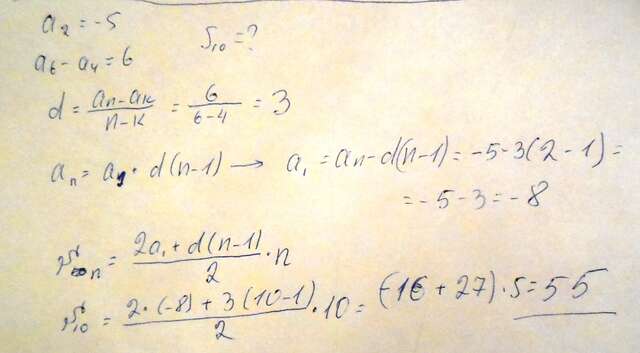 a₂ = -5
S₁₀ = ?
a₆ - a₄ = 6
d = (aₙ - aₖ)/(n - k) = 6/(6-4) = 3
aₙ = a₁ · d(n-1) → a₁ = aₙ - d(n-1) = -5 - 3(2 - 1) =
= -5 - 3 = -8
Sₙ = (2a₁ + d(n-1))/2 · n
S₁₀ = (2 · (-8) + 3(10-1))/2 · 10 = (-16 + 27) · 5 = 55